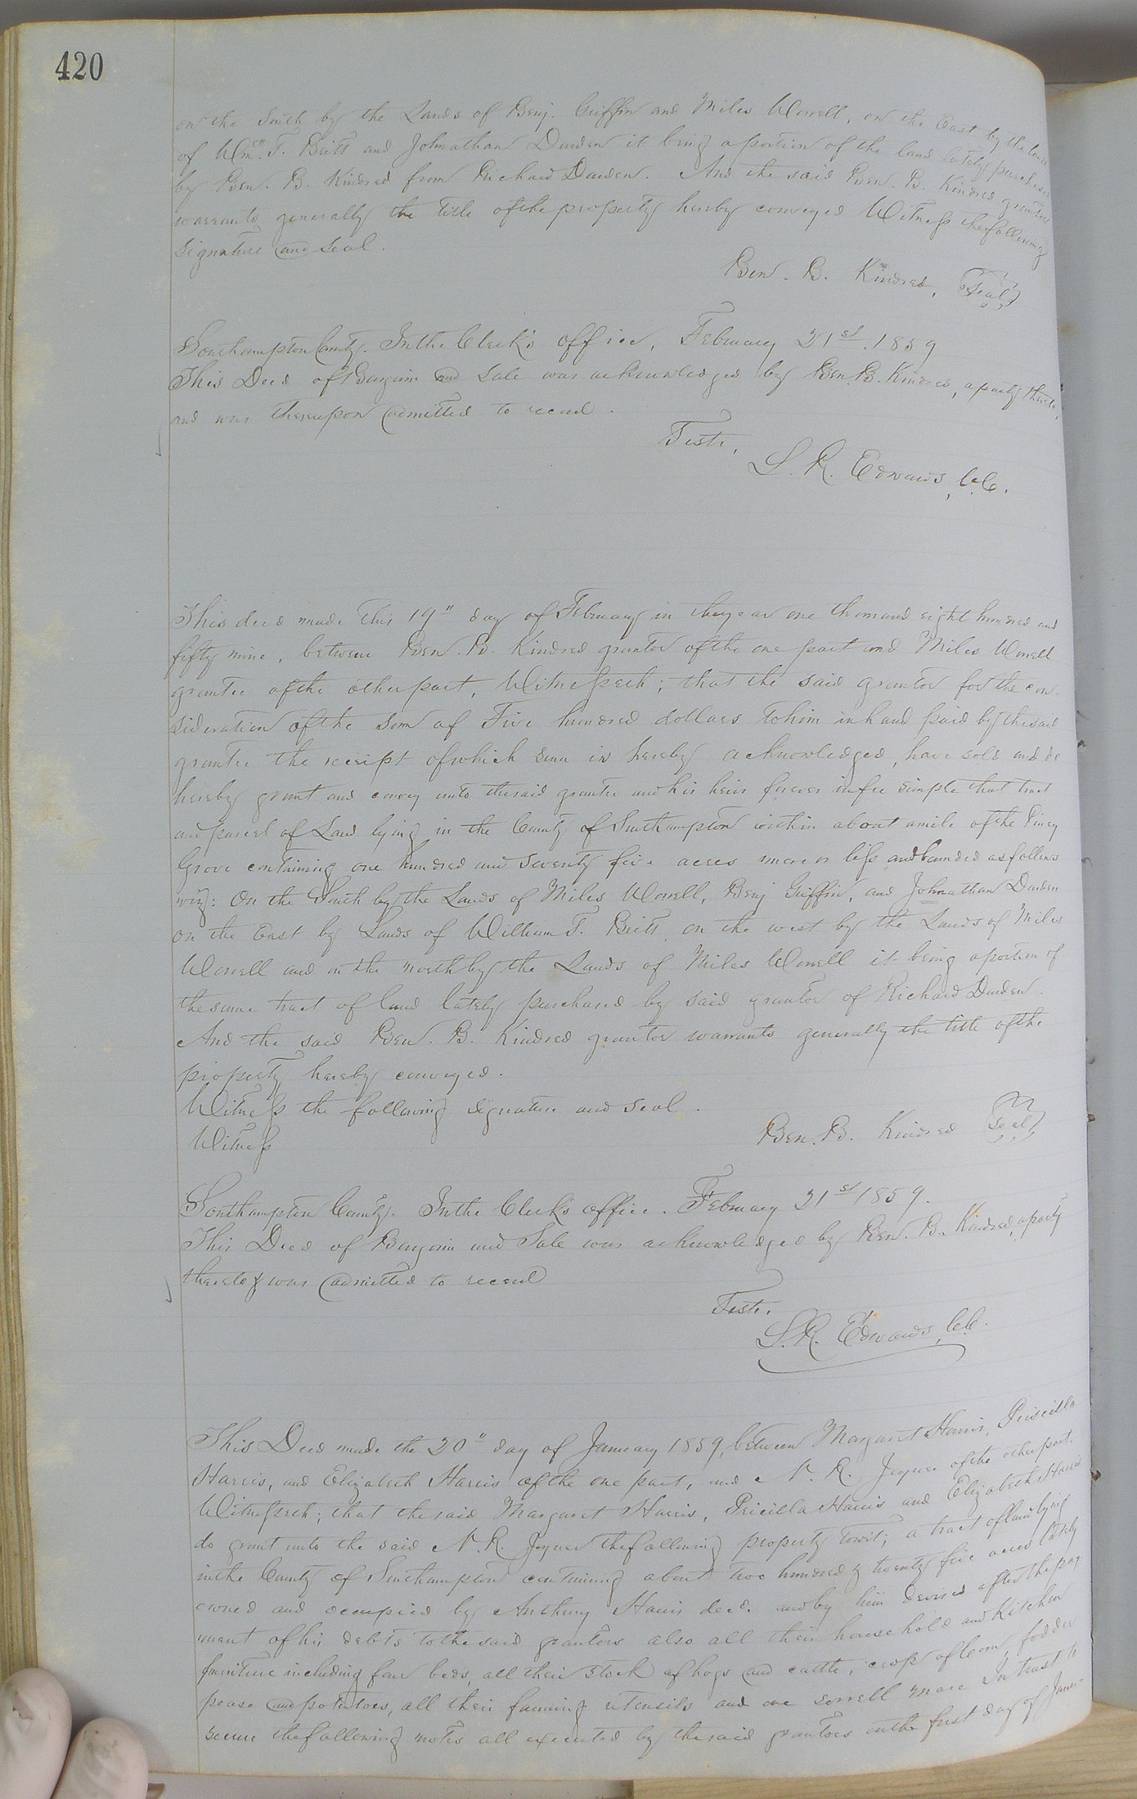 420
on the South by the Lands of Benj. Griffin and Miles Worrell, on the East by the Lands
of Wm. T. Britt and Johnathan Darden it being a portion of the land lately purchased
by Ben. B. Kindred from Richard Darden. And the said Ben. B. Kindred grantor
warrants generally the title of the property hereby conveyed Witness the following
signature and seal.
Ben. B. Kindred, Seal
Southampton County. In the Clerk's office, February 21st. 1859
This Deed of Bargain and Sale was acknowledged by Ben. B. Kindred, a party thereto,
and was thereupon admitted to record.
Teste,
L. R. Edwards, C.C.
This deed made this 19" day of February in the year one thousand eight hundred and
fifty nine, between Ben. B. Kindred grantor of the one part and Miles Worrell
grantee of the other part, Witnesseth; that the said grantor for the con-
sideration of the sum of Five hundred dollars to him in hand paid by the said
grantee the receipt of which sum is hereby acknowledged, have sold and do
hereby grant and convey unto the said grantee and his heirs forever in fee simple that tract
and parcel of Land lying in the County of Southampton within about a mile of the Piney
Grove containing one hundred and seventy five acres more or less and bounded as follows
viz: On the South by the Lands of Miles Worrell, Benj Griffin, and Johnathan Darden
on the East by Lands of William T. Britt, on the west by the Lands of Miles
Worrell and on the north by the Lands of Miles Worrell it being a portion of
the same tract of land lately purchased by said grantor of Richard Darden.
And the said Ben. B. Kindred grantor warrants generally the title of the
property hereby conveyed.
Witness the following signature and seal.
Witness
Ben. B. Kindred Seal
Southampton County. In the Clerk's office. February 21st 1859.
This Deed of Bargain and Sale was acknowledged by Ben. B. Kindred, a party
thereto & was admitted to record
Teste.
L. R. Edwards, C.C.
This Deed made the 20" day of January 1859, between Margaret Harris, Priscilla
Harris, and Elizabeth Harris of the one part, and N. R. Joyner of the other part.
Witnesseth; that the said Margaret Harris, Pricilla Harris and Elizabeth Harris
do grant unto the said N. R. Joyner the following property towit; a tract of land lying
in the County of Southampton containing about two hundred & twenty five acres lately
owned and occupied by Anthony Harris decd. and by him devised after the pay
ment of his debts to the said grantors also all their household and kitchen
furniture including four beds, all their stock of hogs and cattle, crop of corn, fodder
pease and potatoes, all their farming utensils and one sorrell mare In trust to
secure the following notes all executed by the said grantors on the first day of Janu-